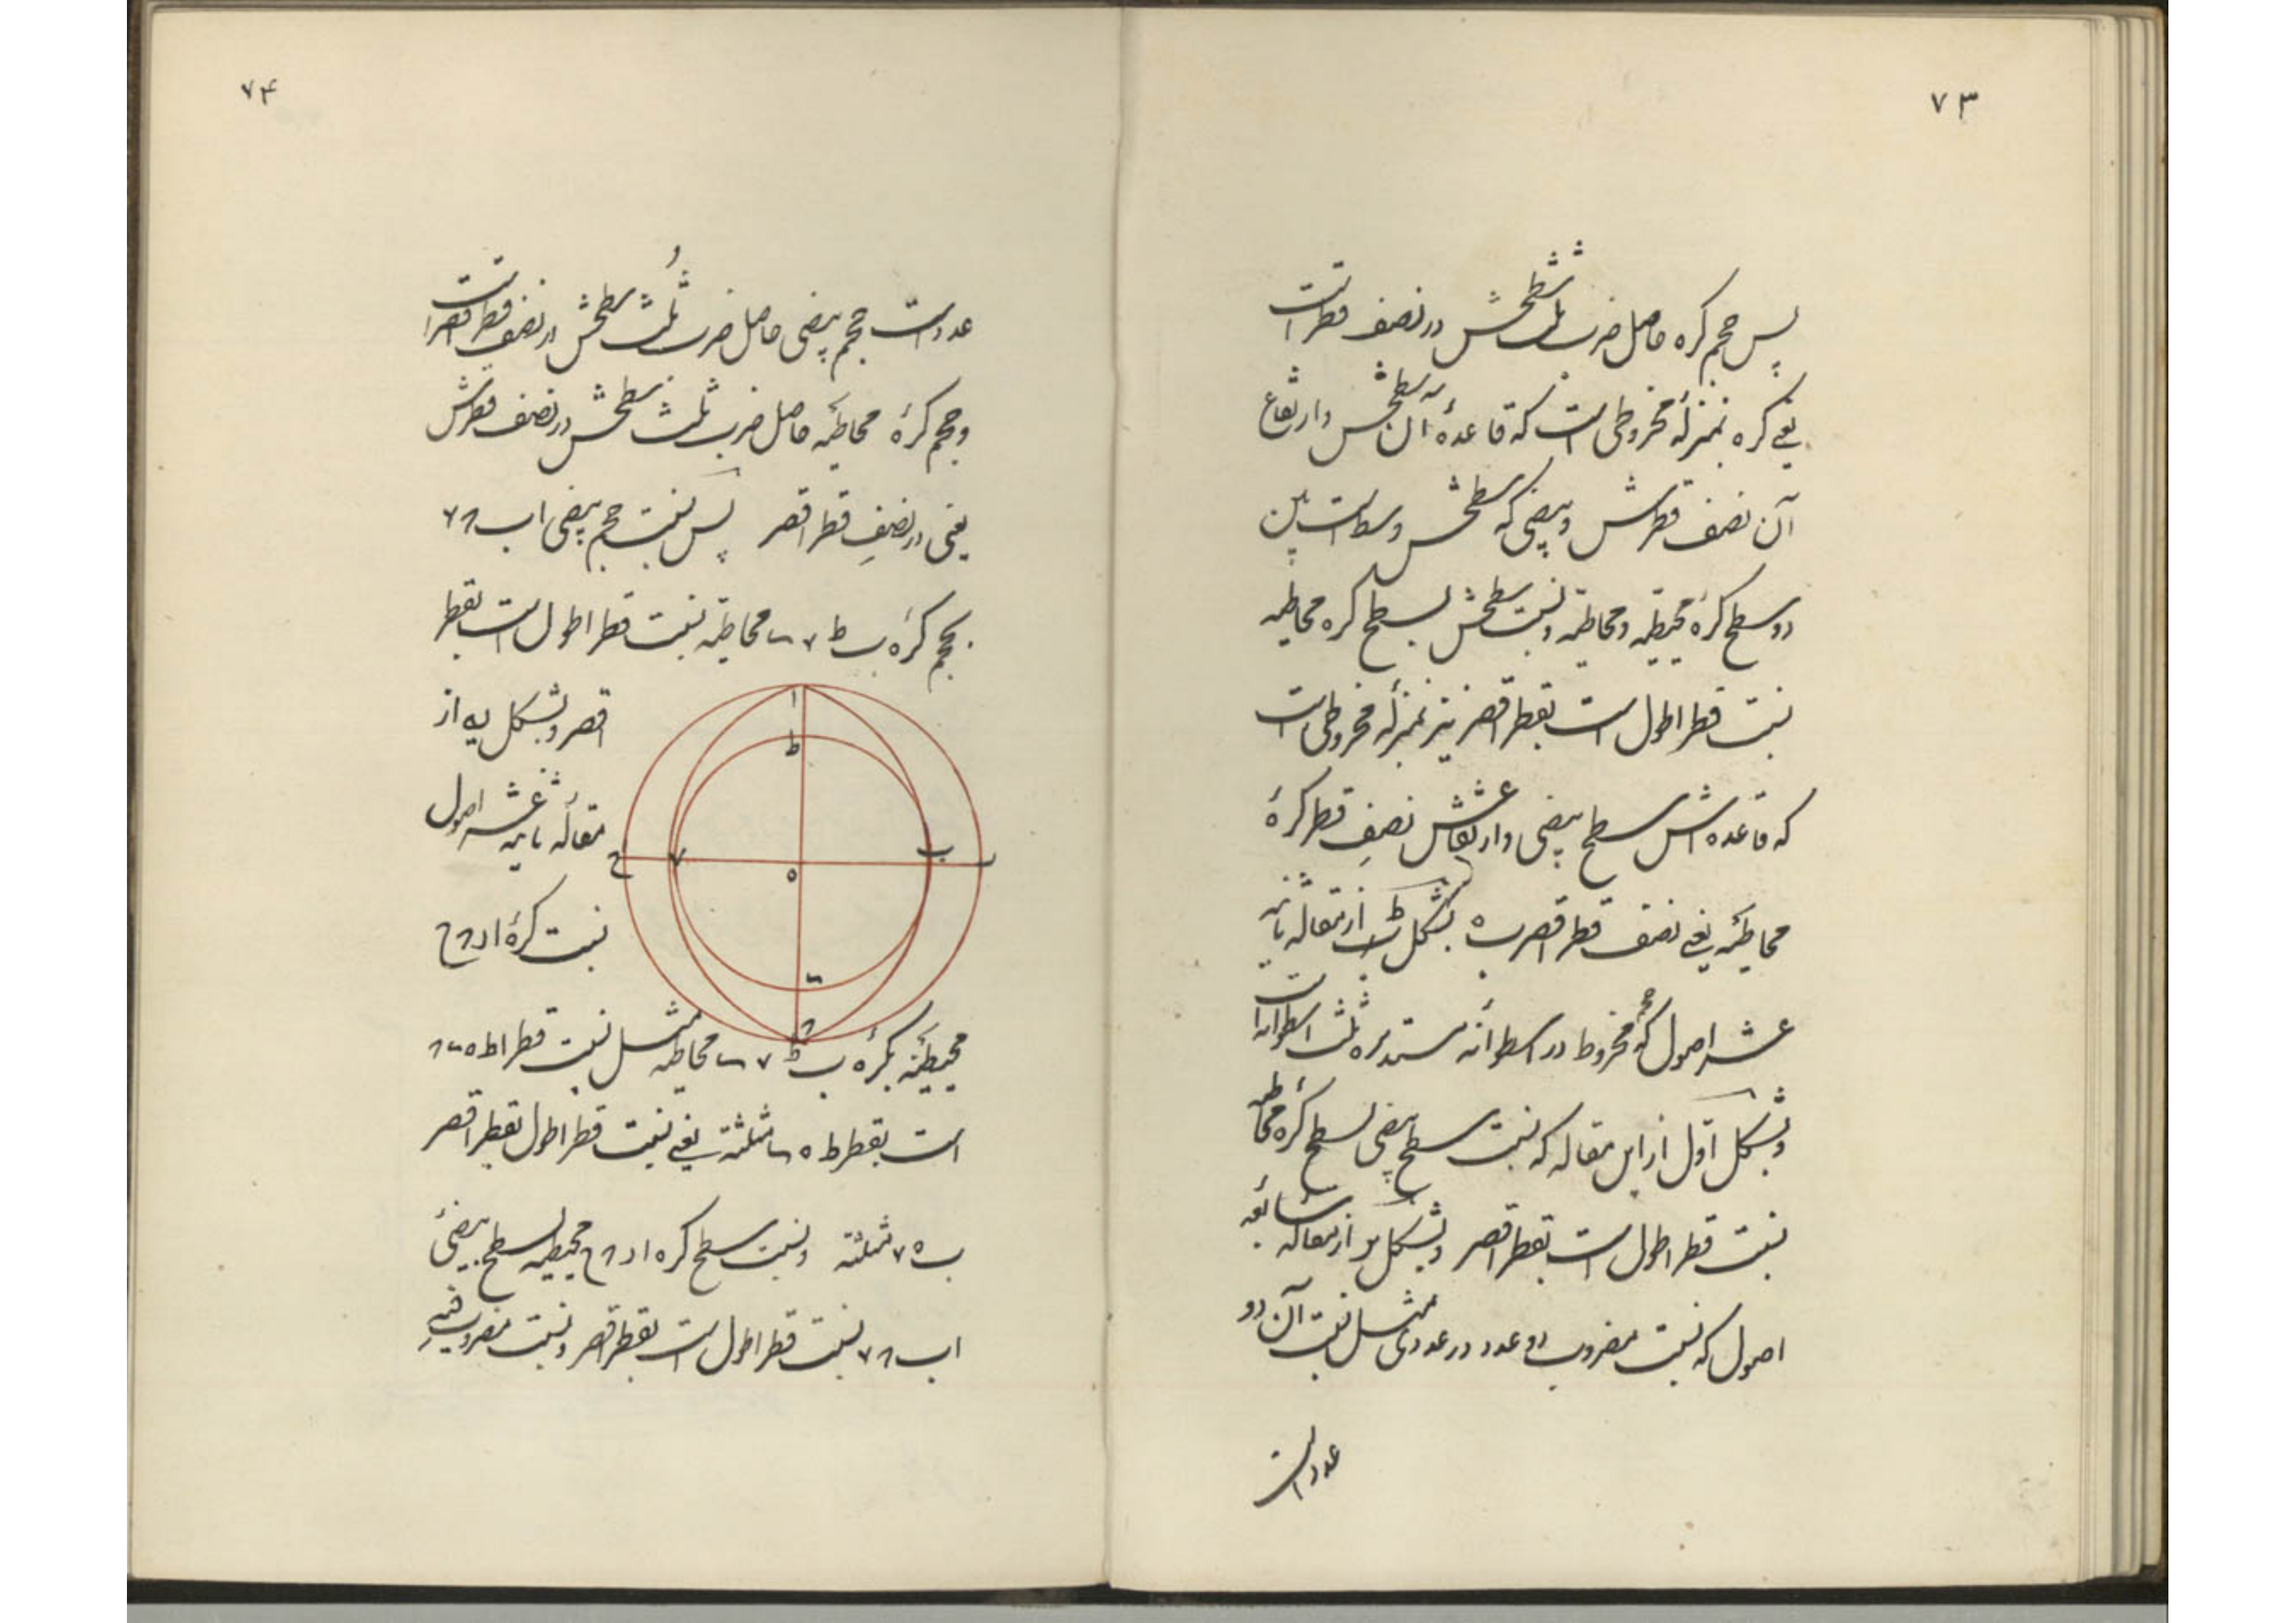 ٧٣
پس حجم کره حاصل ضرب ثلث سطحش در نصف قطر است
یعنے کره بمنزلۀ مخروطی است که قاعدۀ آن سطحش وارتفاع
آن نصف قطرش وبیضی که سطحش وسط است بین
دو سطح کرۀ محیطیه ومحاطیه ونسبت سطحش بسطح کره محاطیه
نسبت قطر اطول است بقطر اقصر نیز بمنزلۀ مخروطی است
که قاعده اش سطح بیضی وارتفاعش نصفِ قطر کرۀ
محاطیه یعنے نصف قطر اقصر ب ه بشکل ط از مقاله ثانیه
عشر اصول که حجم مخروط در اسطوانه مستدیره ثلث اسطوانه است
وبشکل اوّل از این مقاله که نسبت سطح بیضی بسطح کرۀ محاطیه
نسبت قطر اطول است بقطر اقصر وبشکل از مقالۀ سابعه
اصول که نسبت مضروب دو عدد در عددی مثل نسبت آن دو
عدد است
٧۴
عدد است حجم بیضی حاصل ضرب ثُلث سطحش در نصف قطر اقصر است
وحجم کرۀ محاطیه حاصل ضرب ثلث سطحش در نصف قطرش
یعنی در نصفِ قطر اقصر پس نسبت حجم بیضی اب ٧
بحجم کرۀ ب ط ٧ محاطیه نسبت قطر اطول است بقطر
اقصر وبشکل یه از
مقالۀ ثانیه عشر اصول
نسبت کرۀ ا ر ح
ا
ط
ح
٧
ه
ب
ر
محیطیه بکرۀ ب ط ٧ محاطیه مثل نسبت قطر ا ط ه
است بقطر ط ه مثلثته یعنے نسبت قطر اطول بقطر اقصر
ب ه ٧ مثلثته ونسبت سطح کره ا ر ح محیطیه بسطح بیضی
اب ٧ نسبت قطر اطول است بقطر اقصر ونسبت مضروب فیه